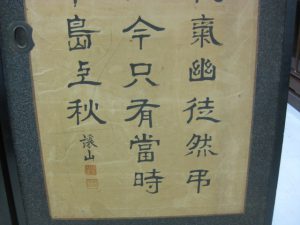 氣幽徒然弔
今只有當時
島上秋
讓山